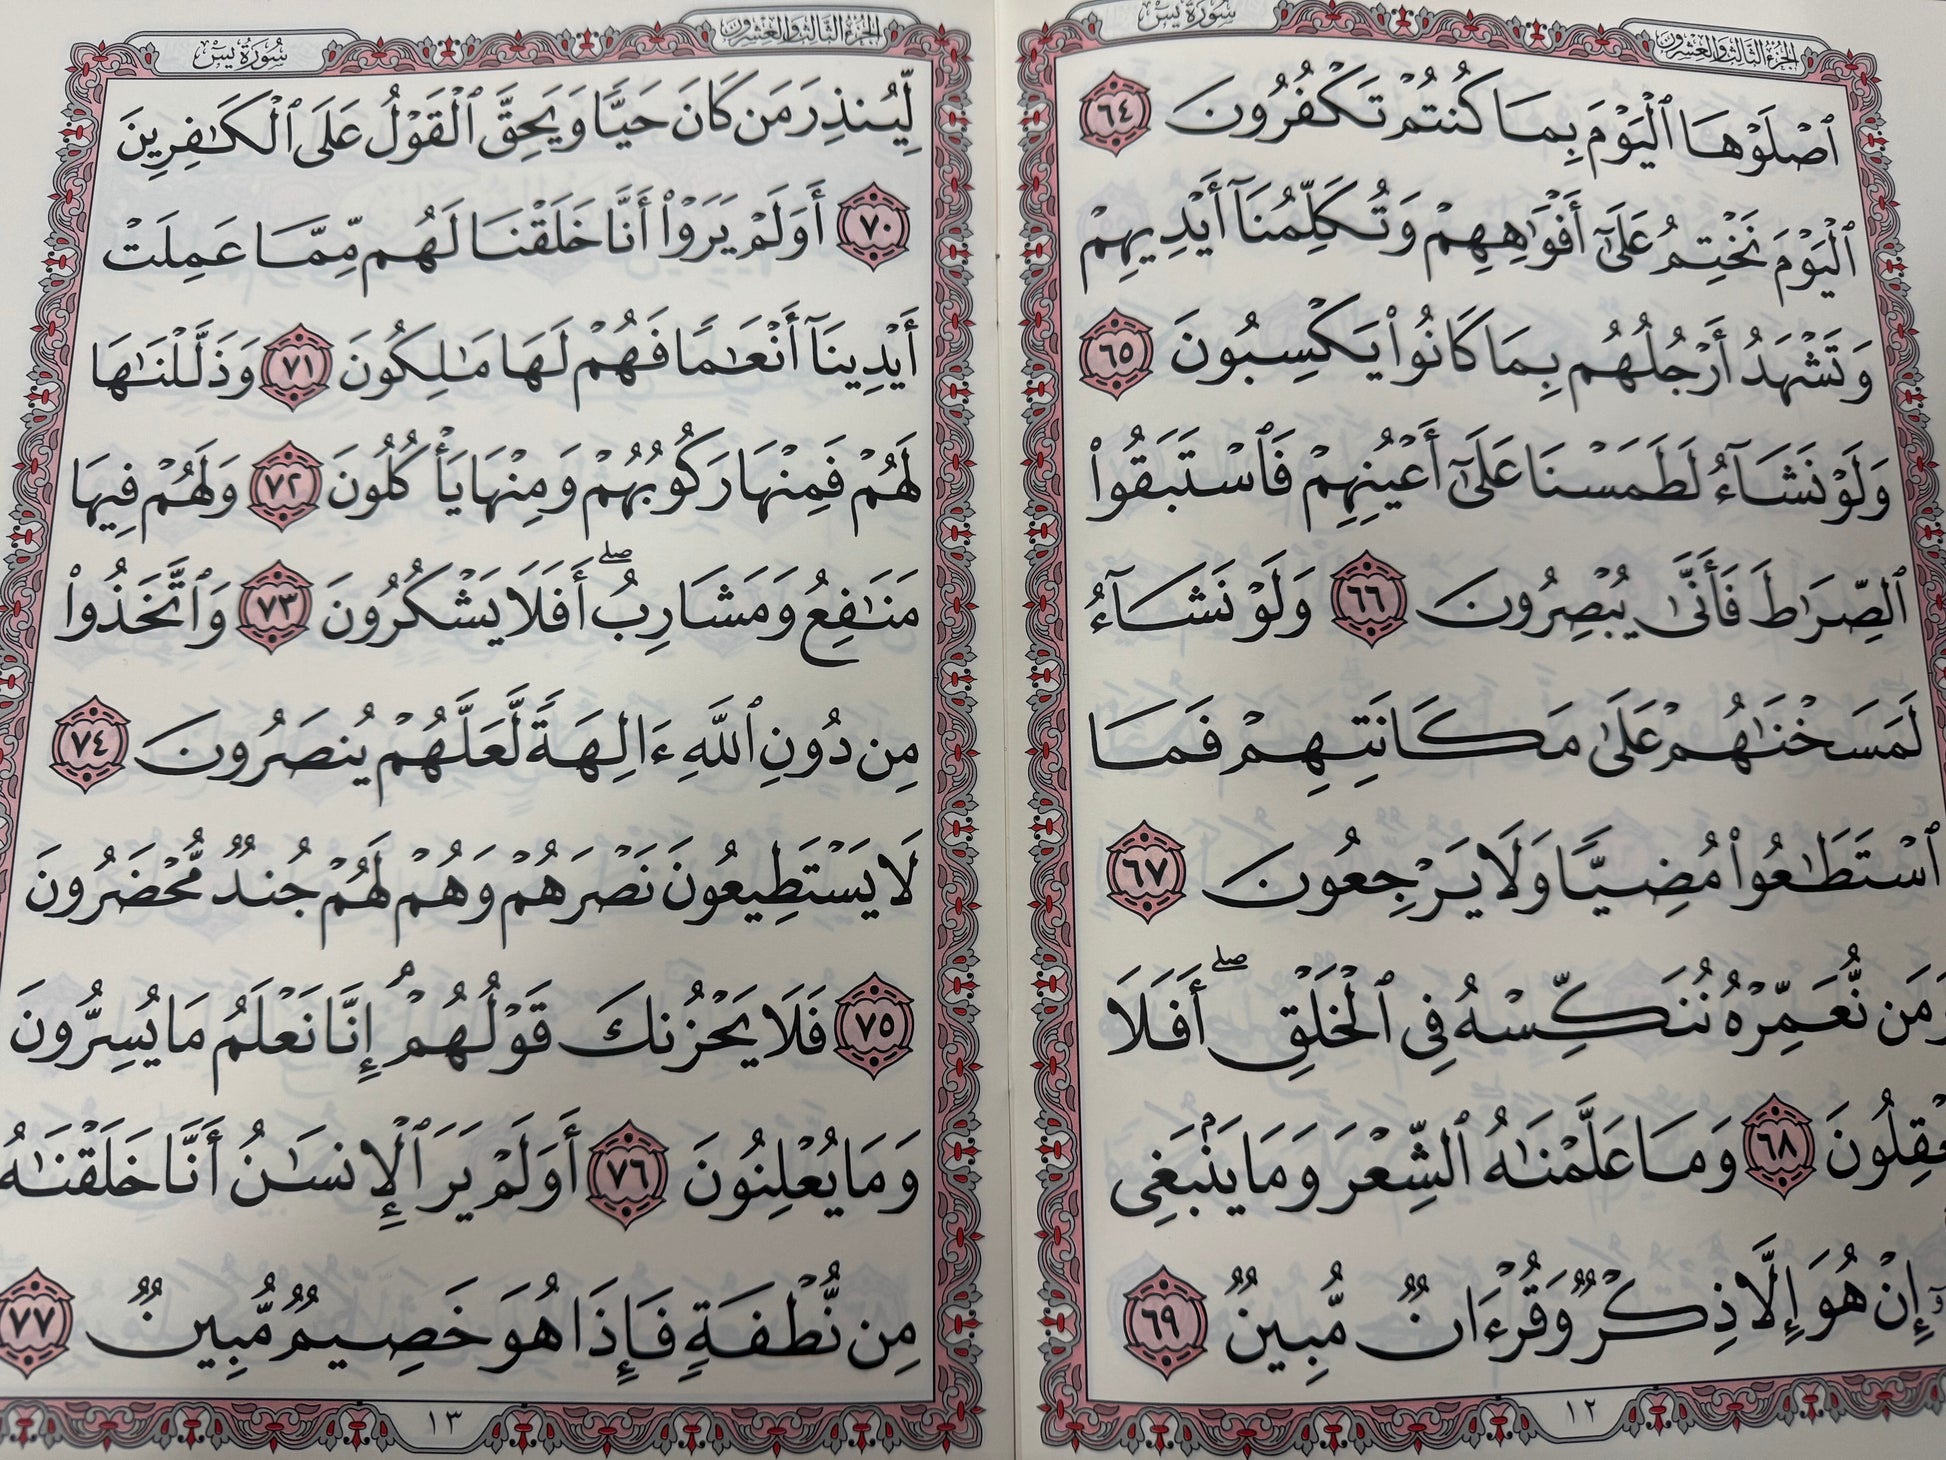 سُورَةُ يسٓ
الجزء الثالث والعشرون
ٱصْلَوْهَا ٱلْيَوْمَ بِمَا كُنتُمْ تَكْفُرُونَ ٦٤
ٱلْيَوْمَ نَخْتِمُ عَلَىٰٓ أَفْوَٰهِهِمْ وَتُكَلِّمُنَآ أَيْدِيهِمْ
وَتَشْهَدُ أَرْجُلُهُم بِمَا كَانُوا۟ يَكْسِبُونَ ٦٥
وَلَوْ نَشَآءُ لَطَمَسْنَا عَلَىٰٓ أَعْيُنِهِمْ فَٱسْتَبَقُوا۟
ٱلصِّرَٰطَ فَأَنَّىٰ يُبْصِرُونَ ٦٦ وَلَوْ نَشَآءُ
لَمَسَخْنَٰهُمْ عَلَىٰ مَكَانَتِهِمْ فَمَا
ٱسْتَطَٰعُوا۟ مُضِيًّا وَلَا يَرْجِعُونَ ٦٧
وَمَن نُّعَمِّرْهُ نُنَكِّسْهُ فِى ٱلْخَلْقِ ۖ أَفَلَا
عْقِلُونَ ٦٨ وَمَا عَلَّمْنَٰهُ ٱلشِّعْرَ وَمَا يَنۢبَغِى
إِنْ هُوَ إِلَّا ذِكْرٌ وَقُرْءَانٌ مُّبِينٌ ٦٩
١٢
سُورَةُ يسٓ
الجزء الثالث والعشرون
لِّيُنذِرَ مَن كَانَ حَيًّا وَيَحِقَّ ٱلْقَوْلُ عَلَى ٱلْكَٰفِرِينَ
٧٠ أَوَلَمْ يَرَوْا۟ أَنَّا خَلَقْنَا لَهُم مِّمَّا عَمِلَتْ
أَيْدِينَآ أَنْعَٰمًا فَهُمْ لَهَا مَٰلِكُونَ ٧١ وَذَلَّلْنَٰهَا
لَهُمْ فَمِنْهَا رَكُوبُهُمْ وَمِنْهَا يَأْكُلُونَ ٧٢ وَلَهُمْ فِيهَا
مَنَٰفِعُ وَمَشَارِبُ ۖ أَفَلَا يَشْكُرُونَ ٧٣ وَٱتَّخَذُوا۟
مِن دُونِ ٱللَّهِ ءَالِهَةً لَّعَلَّهُمْ يُنصَرُونَ ٧٤
لَا يَسْتَطِيعُونَ نَصْرَهُمْ وَهُمْ لَهُمْ جُندٌ مُّحْضَرُونَ
٧٥ فَلَا يَحْزُنكَ قَوْلُهُمْ ۘ إِنَّا نَعْلَمُ مَا يُسِرُّونَ
وَمَا يُعْلِنُونَ ٧٦ أَوَلَمْ يَرَ ٱلْإِنسَٰنُ أَنَّا خَلَقْنَٰهُ
مِن نُّطْفَةٍ فَإِذَا هُوَ خَصِيمٌ مُّبِينٌ ٧٧
١٣